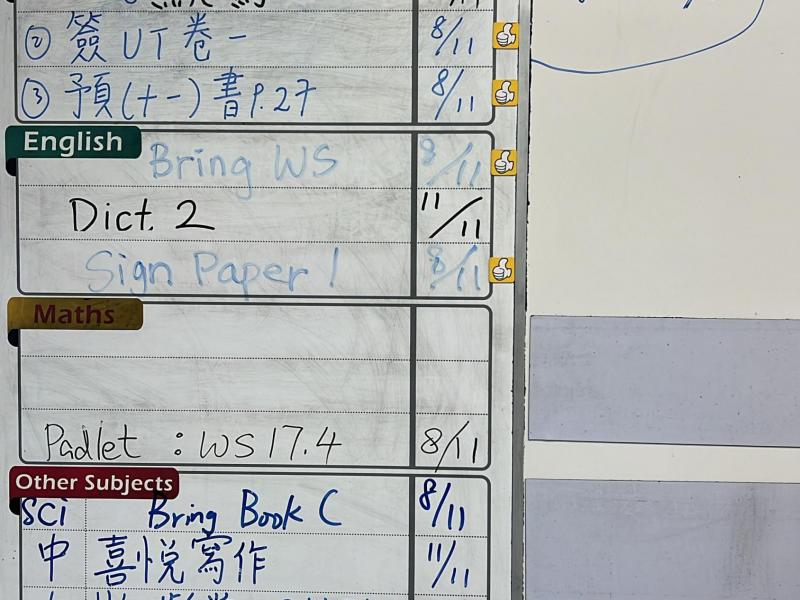 ② 簽 UT 卷一 8/11
③ 預(十一)書P.27 8/11
English
Bring WS 8/11
Dict. 2 11/11
Sign Paper 1 8/11
Maths
Padlet : WS 17.4 8/11
Other Subjects
Sci Bring Book C 8/11
中 喜悅寫作 11/11